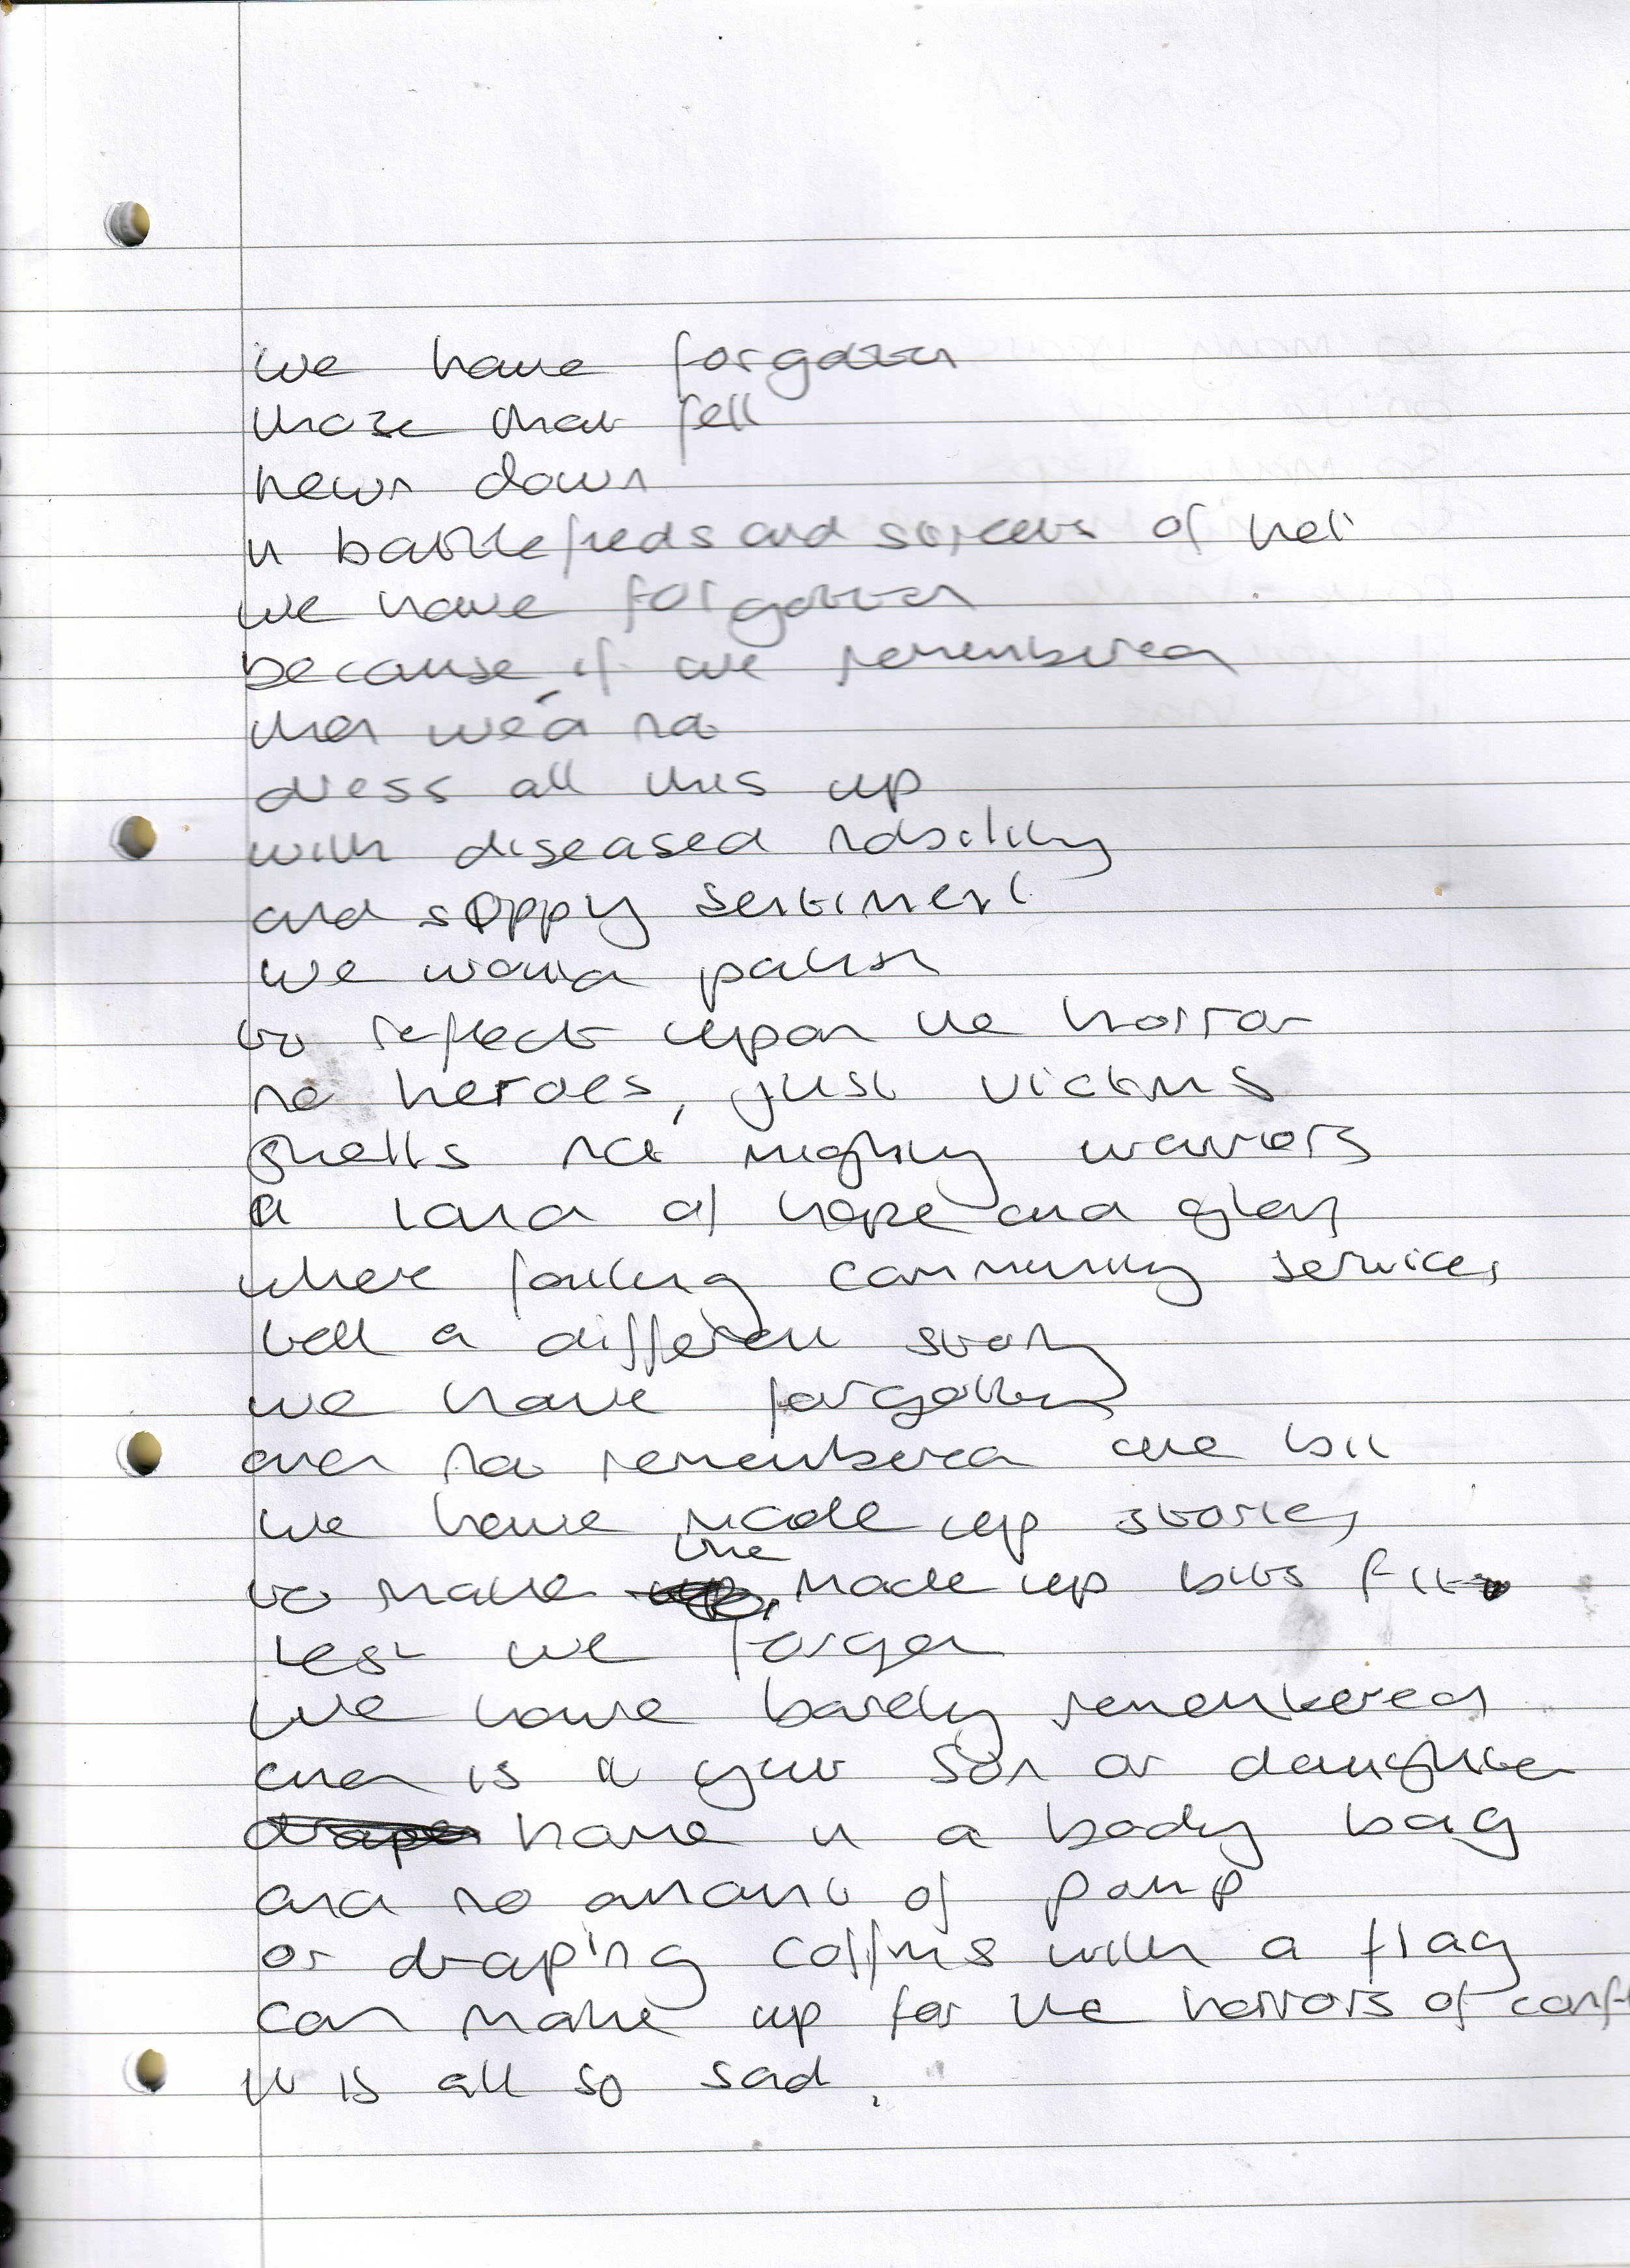 we have forgotten
those that fell
hewn down
in battlefields and streets of hell
we have forgotten
because if we remembered
then we'd not
dress all this up
with diseased nobility
and soppy sentiment
we would pause
to reflect upon the horror
no heroes, just victims
shells not mighty warriors
a land of hope and glory
where failing community services
tell a different story
we have forgotten
and not remembered one bit
we have made up stories
to make the made up bits fit
lest we forget
we have barely remembered
and is it your son or daughter
home in a body bag
and no amount of pomp
or draping coffins with a flag
can make up for the horrors of conf
it is all so sad.